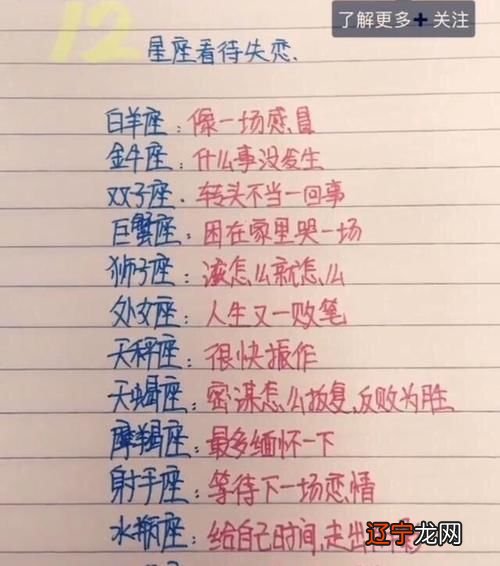 了解更多+关注
12
星座看待失恋.
白羊座：像一场感冒
金牛座：什么事没发生
双子座.转头不当一回事
巨蟹座：困在家里哭一场
狮子座：该怎么就怎么
处女座：人生又一败笔
天秤座：很快振作
天蝎座：密谋怎么报复,反败为胜
摩羯座：最多缅怀一下
射手座：等待下一场恋情
水瓶座：给自己时间,走出
辽宁龙网